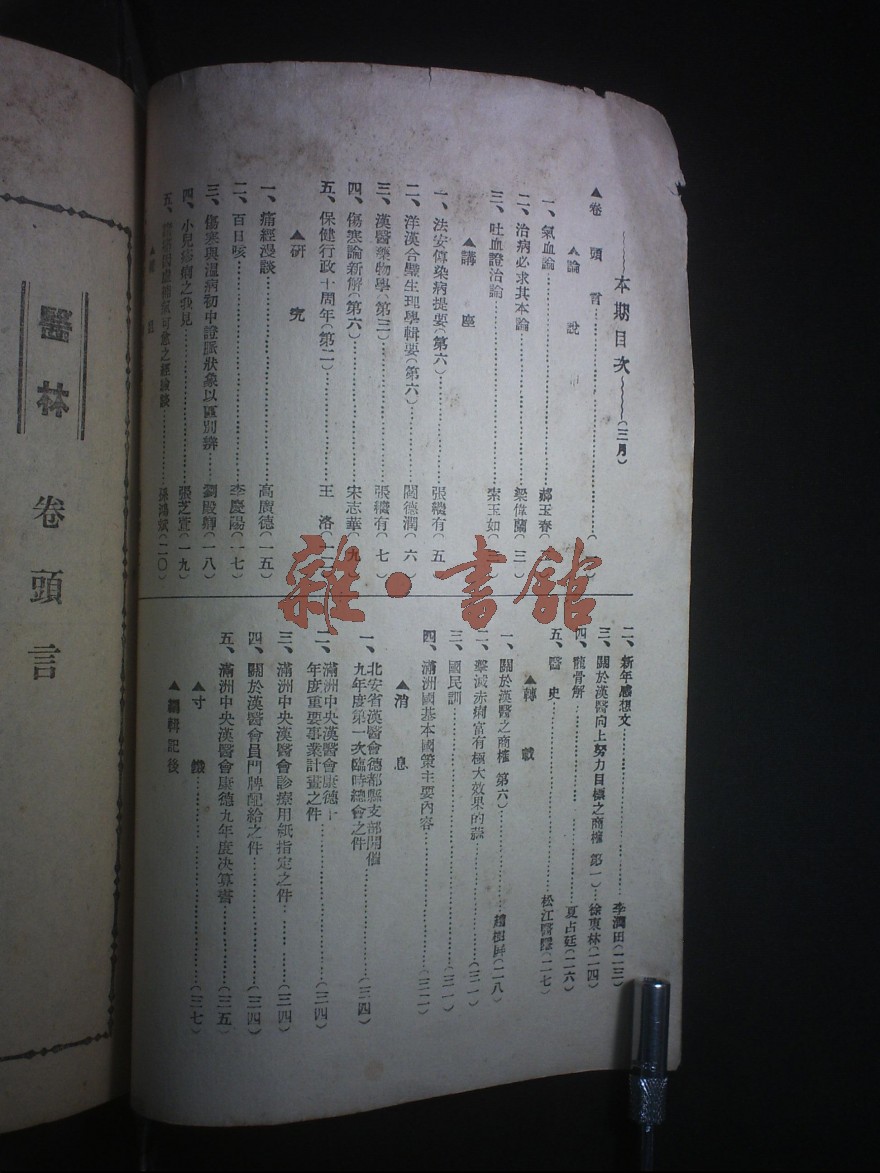 本期目次(三月)
▲卷頭言
▲論說
一、氣血論 郝玉春
二、治病必求其本論 梁偉蘭(三)
三、吐血證治論 索玉如
▲講座
一、法安傳染病提要(第六) 張繼有(五
二、洋漢合璧生理學輯要(第六) 閻德潤(六)
三、漢醫藥物學(第三) 張繼有(七)
四、傷寒論新解(第六) 宋志華(九
五、保健行政十周年(第二) 王洛(一二
▲研究
一、痛經漫談 高廣德(一五)
二、百日咳 李慶陽(一七)
三、傷寒與溫病初中證脈狀象以區別辨 劉殿卿(一八)
四、小兒疹病之我見 張芝萱(一九)
五、可愈之經驗談 孫鴻(二〇)
二、新年感想文 李潤田(二三)
三、關於漢醫向上努力目標之商榷 第一 徐東林(二四)
四、龍骨解 夏占廷(二六)
五、醫史 松江醫隱(二七)
▲轉載
一、關於漢醫之商榷 第六 趙樹屏(二八)
二、擊滅赤痢富有極大效果的 (三一)
三、國民訓 (三一)
四、滿洲國基本國策主要內容 (三二)
▲消息
一、北安省漢醫會德都縣支部開催
九年度第一次臨時總會之件 (三四)
二、滿洲中央漢醫會康德十
年度重要事業計畫之件 (三四)
三、滿洲中央漢醫會診療用紙指定之件 (三四)
四、關於漢醫會員門牌配給之件 (三四)
五、滿洲中央漢醫會康德九年度決算書 (三五)
▲寸鐵 (三七)
▲編輯記後
醫林
卷頭言
雜·書館